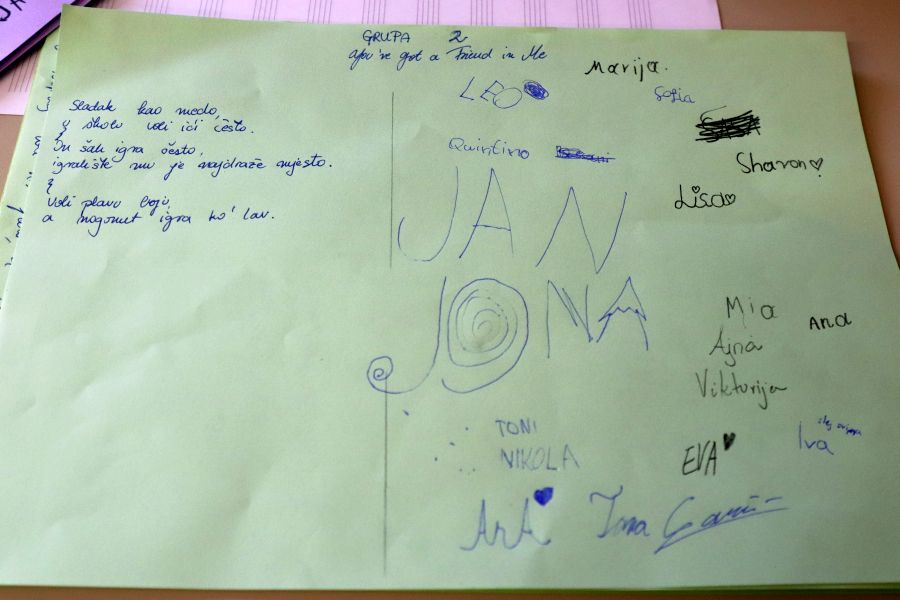 GRUPA 2
You've got a Friend in Me
Sladak kao medo,
u školu voli ići često.
On šah igra često,
igralište mu je najdraže mjesto.
Voli plavu boju,
a nogomet igra ko' lav.
Marija.
LEO
Sofia
Quintino
Sharon
Lisa
JAN
JONA
Mia
Ana
Ajna
Vikturija
TONI
NIKOLA
EVA
Iva
AnA